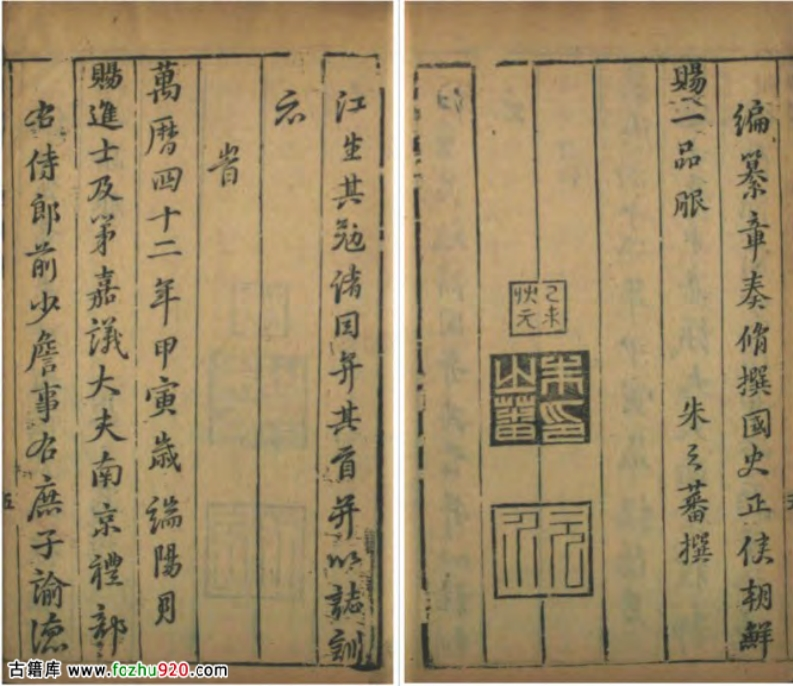 江生其勉脩因弁其首并以誌訓
云
旹
萬曆四十二年甲寅歲端陽月
賜進士及第嘉議大夫南京禮部
右侍郎前少詹事右庶子諭德
編纂章奏脩撰國史正使朝鮮
賜一品服 朱之蕃撰
乙未狀元
朱印之蕃
元介
古籍库 www.fozhu920.com